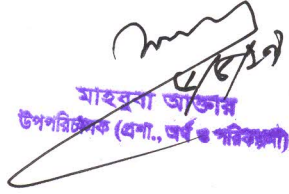 মাহবুবা আক্তার
উপপরিচালক (প্রশা., অর্থ ও পরিকল্পনা)